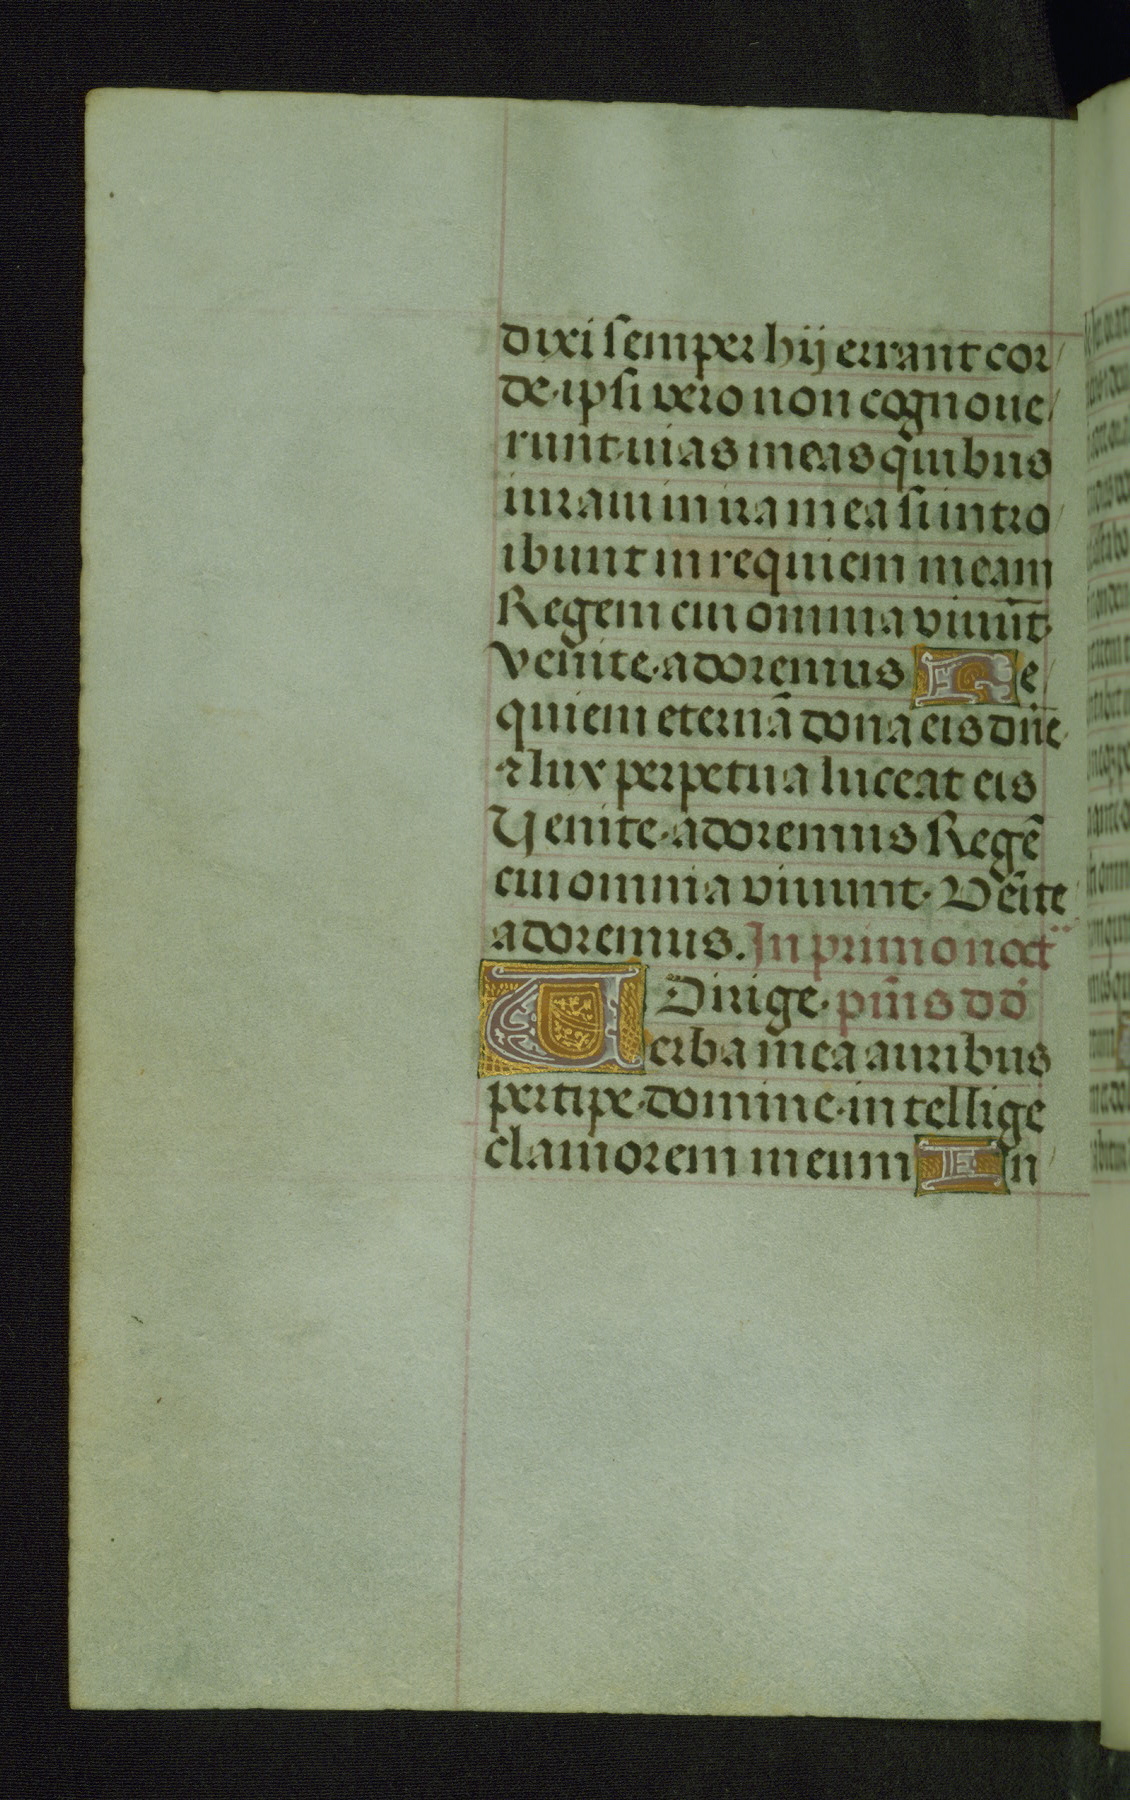 dixi semper hij errant cor/
de·ipsi vero non cognoue/
runt·uias meas quibus
iuraui in ira mea si intro/
ibunt in requiem meam
Regem cui omnia viuūt·
venite·adoremus Re/
quiem eternā dona eis dn̄e·
⁊ lux perpetua luceat eis
Venite·adoremus Regē
cui omnia viuunt· Vēite
adoremus. In primo noct̄
Dirige· pīus dd̄
Verba mea auribus
percipe·domine·intellige
clamorem meum In/